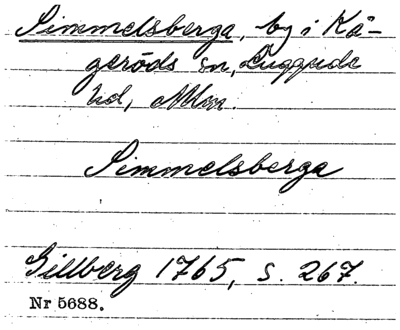 Simmelsberga, by i Kå-
geröds sn, Luggude
hd, Mlm.
Simmelsberga
Gillberg 1765, s. 267.
Nr 5688.